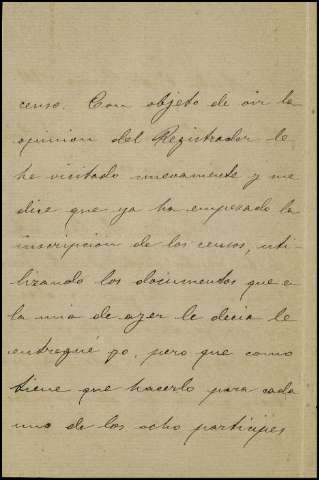 censo. Con objeto de oir la
opinion del Registrador le
he visitado nuevamente y me
dice que ya ha empezado la
inscripcion de los censos, uti-
lizando los documentos que e
la mia de ayer le decia le
entregué yo, pero que como
tiene que hacerlo para cada
uno de los ocho participes